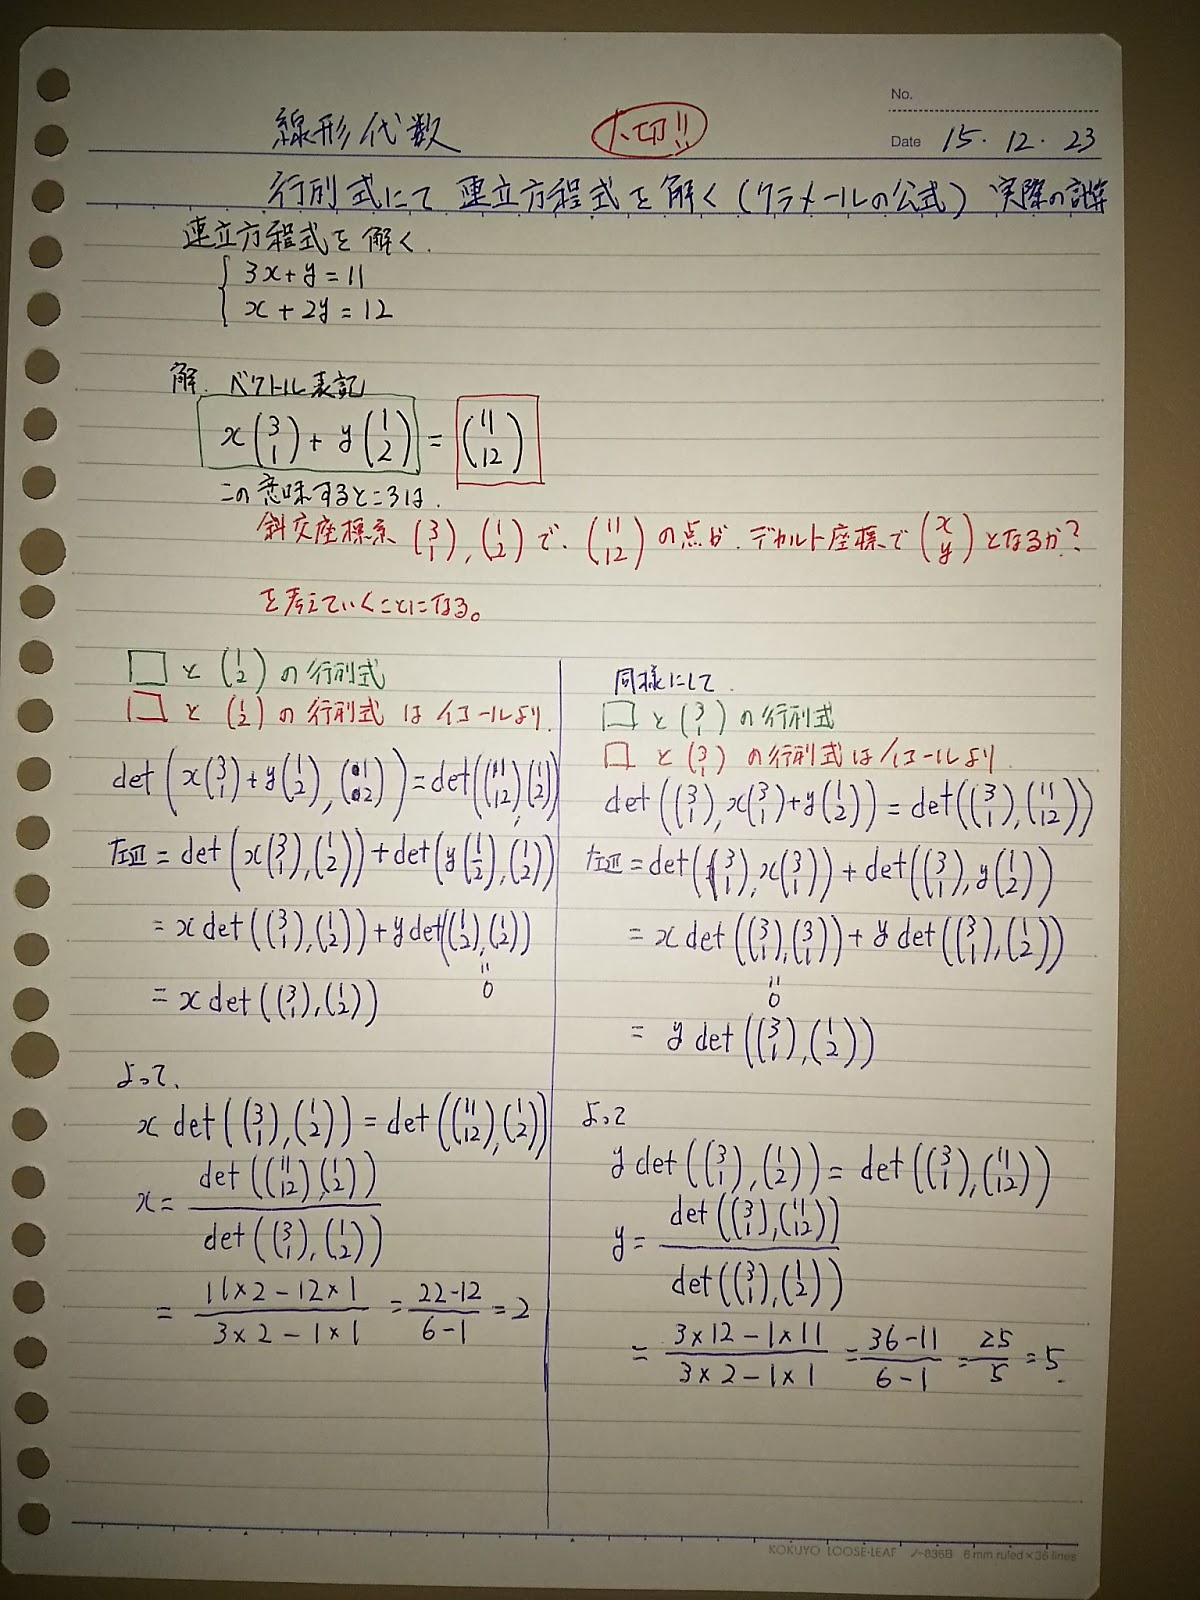 No.
線形代数 大切!!
Date 15.12.23
行列式にて連立方程式を解く(クラメールの公式) 実際の計算
連立方程式を解く.
{ 3x+y=11
x+2y=12
解. ベクトル表記
x(3 1)+y(1 2)=(11 12)
この意味するところは.
斜交座標系(3 1),(1 2)で、(11 12)の点が.デカルト座標で(x y)となるか?
を考えていくことになる。
□と(1 2)の行列式
□と(1 2)の行列式はイコールより.
det(x(3 1)+y(1 2),(1 2))=det((11 12),(1 2))
左辺=det(x(3 1),(1 2))+det(y(1 2),(1 2))
=x det((3 1),(1 2))+y det((1 2),(1 2))
"
0
=x det((3 1),(1 2))
よって、
x det((3 1),(1 2))=det((11 12),(1 2))
x=det((11 12),(1 2))/det((3 1),(1 2))
=11×2-12×1/3×2-1×1=22-12/6-1=2
同様にして.
□と(3 1)の行列式
□と(3 1)の行列式はイコールより
det((3 1),x(3 1)+y(1 2))=det((3 1),(11 12))
左辺=det((3 1),x(3 1))+det((3 1),y(1 2))
=x det((3 1),(3 1))+y det((3 1),(1 2))
"
0
=y det((3 1),(1 2))
よって
y det((3 1),(1 2))=det((3 1),(11 12))
y=det((3 1),(11 12))/det((3 1),(1 2))
=3×12-1×11/3×2-1×1=36-11/6-1=25/5=5.
KOKUYO LOOSE-LEAF ノ-836B 6 mm ruled×36 lines